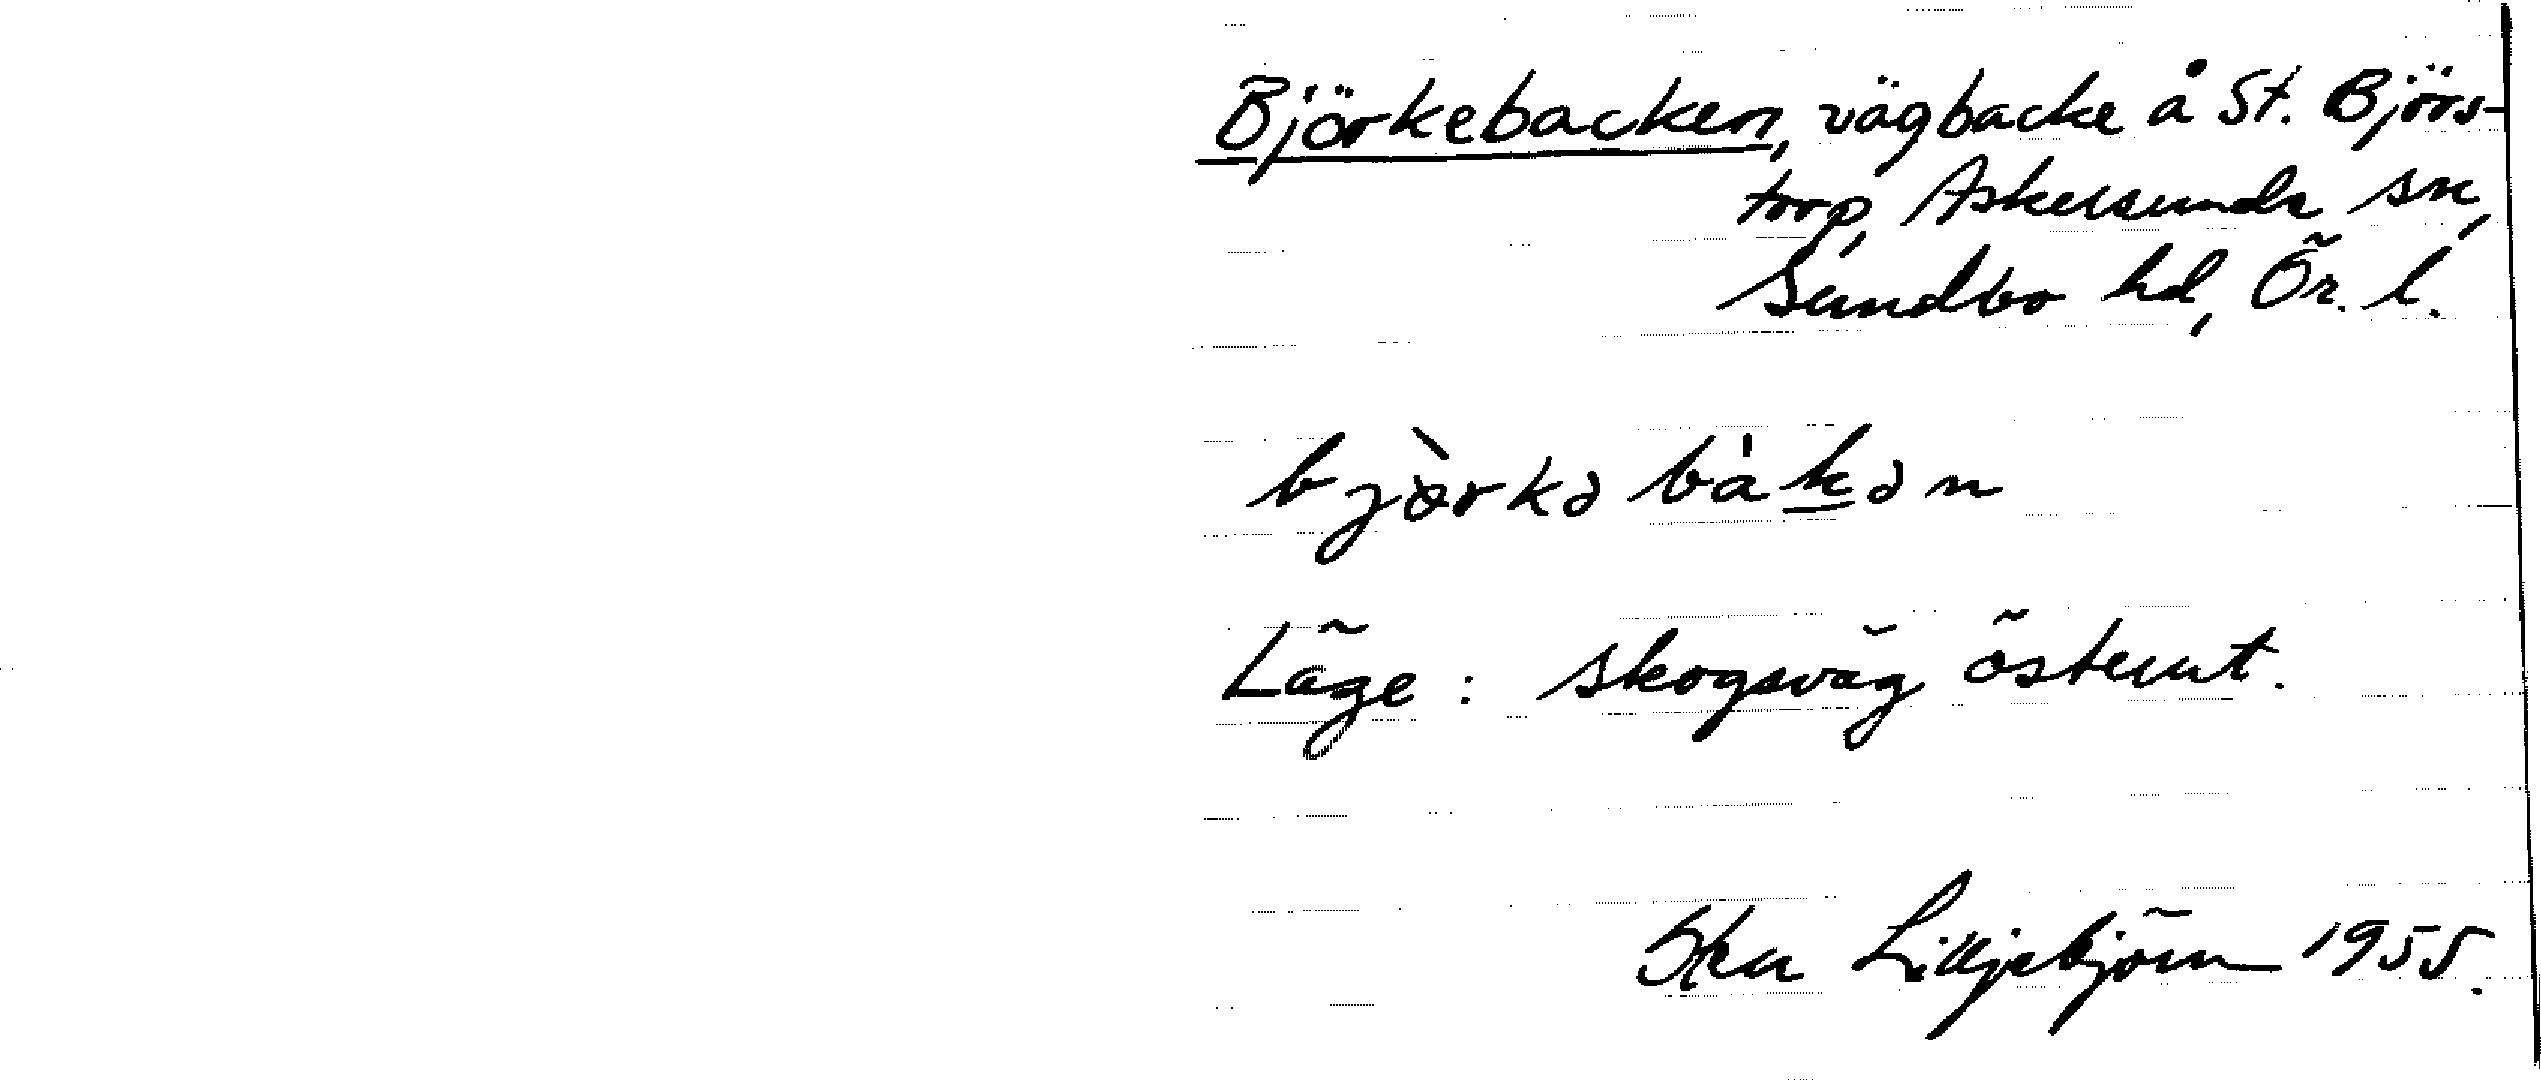 Björkebacken, vägbacke å St. Björs-
torp, Askersunds sn,
Sundbo hd, Ör. l.
bjòrkəbàkən
Läge: skogsväg österut.
Lilljebjörn 1955.